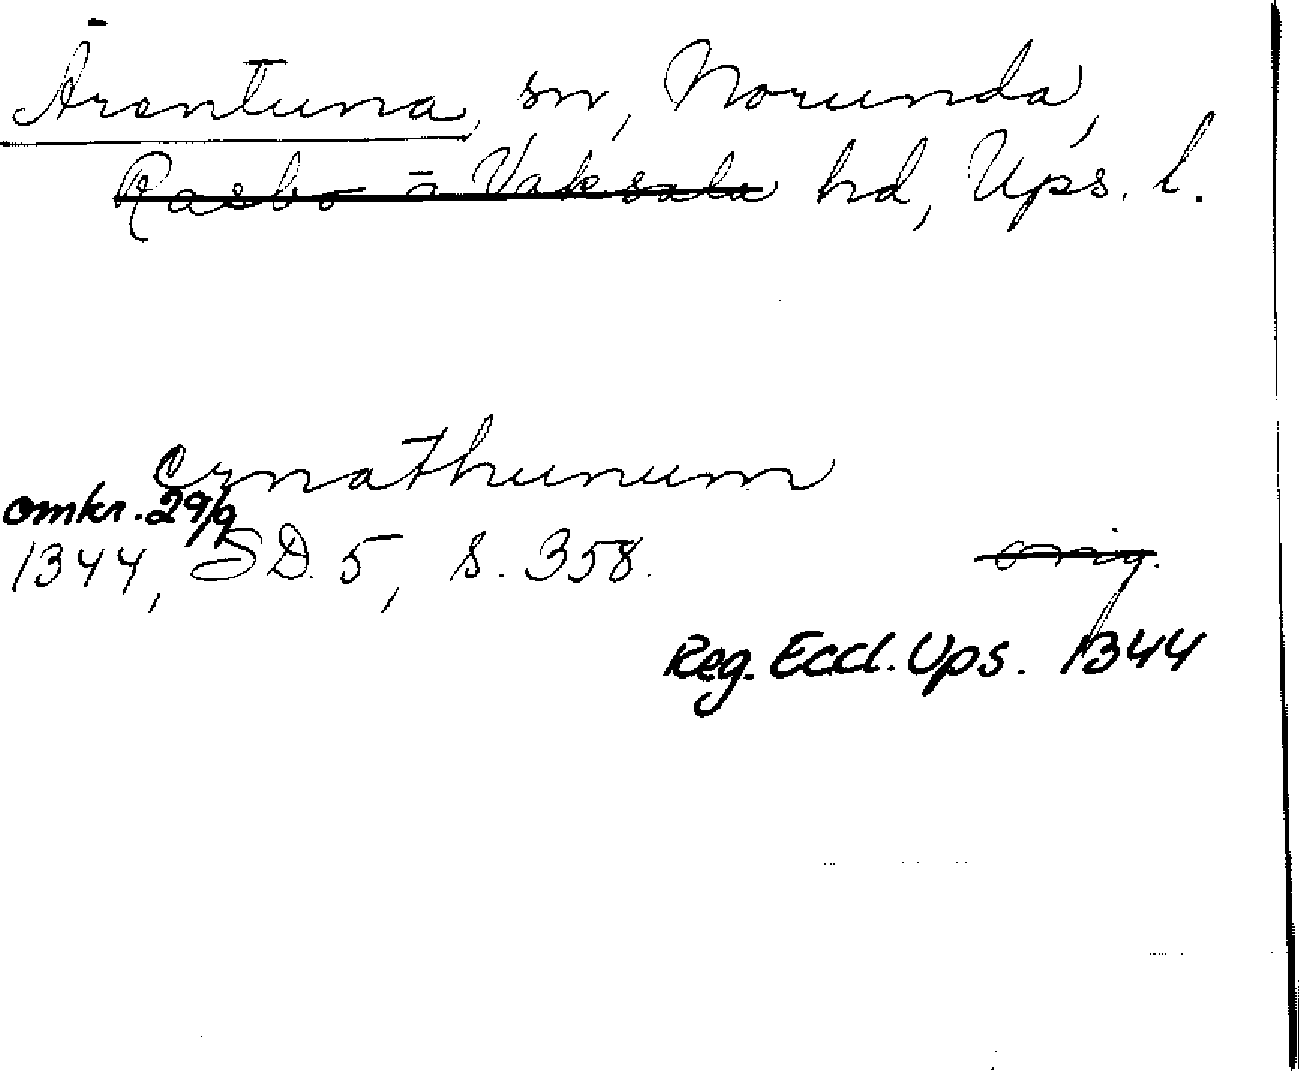 Ärentuna, sn, Norunda,
Rasbo o Vaksala hd, Ups. l.
Ernathunum
omkr. 29/9
1344, SD. 5, s. 358.
orig.
Reg. Eccl. Ups. 1344